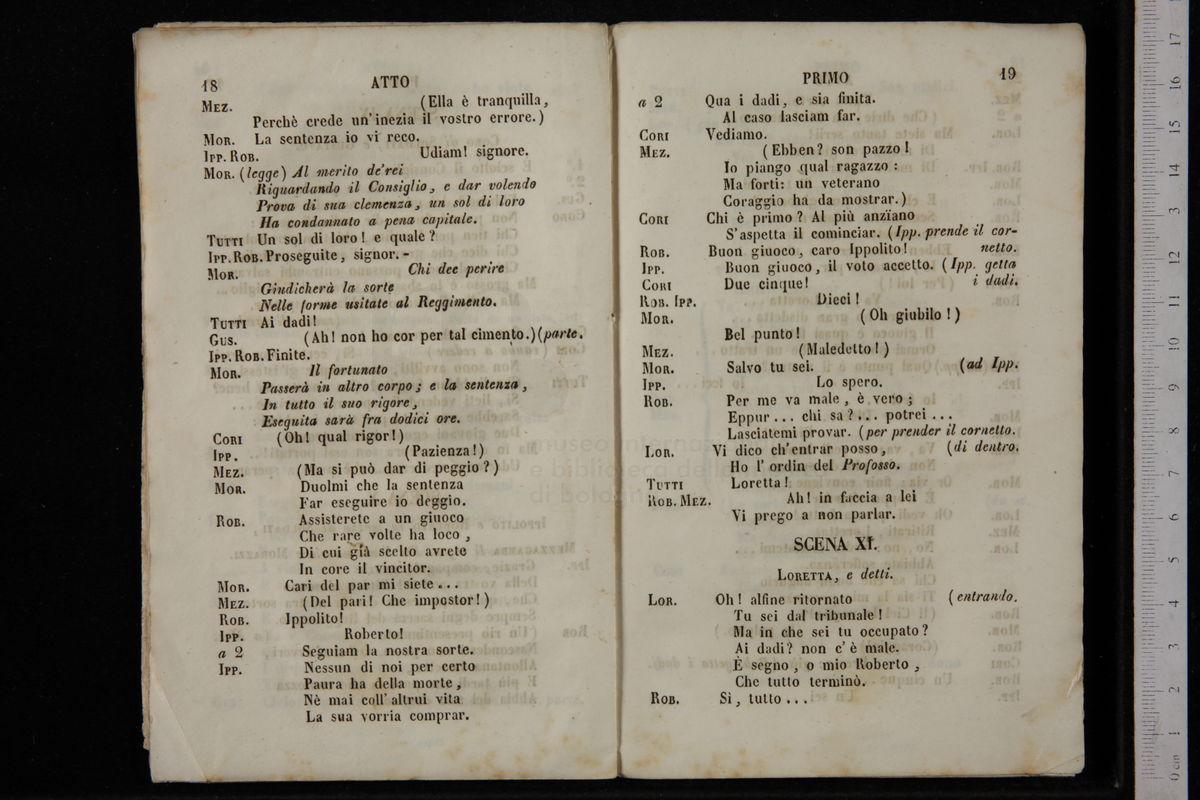 18 ATTO
MEZ. (Ella è tranquilla,
Perchè crede un'inezia il vostro errore.)
MOR. La sentenza io vi reco.
IPP. ROB. Udiam! signore.
MOR. (legge) Al merito de'rei
Riguardando il Consiglio, e dar volendo
Prova di sua clemenza, un sol di loro
Ha condannato a pena capitale.
TUTTI Un sol di loro! e quale?
IPP. ROB. Proseguite, signor. -
MOR. Chi dee perire
Giudicherà la sorte
Nelle forme usitate al Reggimento.
TUTTI Ai dadi!
GUS. (Ah! non ho cor per tal cimento.) (parte.
IPP. ROB. Finite.
MOR. Il fortunato
Passerà in altro corpo; e la sentenza,
In tutto il suo rigore,
Eseguita sarà fra dodici ore.
CORI (Oh! qual rigor!)
IPP. (Pazienza!)
MEZ. (Ma si può dar di peggio?)
MOR. Duolmi che la sentenza
Far eseguire io deggio.
ROB. Assisterete a un giuoco
Che rare volte ha loco,
Di cui già scelto avrete
In core il vincitor.
MOR. Cari del par mi siete...
MEZ. (Del pari! Che impostor!)
ROB. Ippolito!
IPP. Roberto!
a 2 Seguiam la nostra sorte.
IPP. Nessun di noi per certo
Paura ha della morte,
Nè mai coll'altrui vita
La sua vorria comprar.
PRIMO 19
a 2 Qua i dadi, e sia finita.
Al caso lasciam far.
CORI Vediamo.
MEZ. (Ebben? son pazzo!
Io piango qual ragazzo:
Ma forti: un veterano
Coraggio ha da mostrar.)
CORI Chi è primo? Al più anziano
S'aspetta il cominciar. (Ipp. prende il cor-
ROB. Buon giuoco, caro Ippolito! netto.
IPP. Buon giuoco, il voto accetto. (Ipp. getta
CORI Due cinque! i dadi.
ROB. IPP. Dieci!
MOR. (Oh giubilo!)
Bel punto!
MEZ. (Maledetto!)
MOR. Salvo tu sei. (ad Ipp.
IPP. Lo spero.
ROB. Per me va male, è vero;
Eppur... chi sa?... potrei...
Lasciatemi provar. (per prender il cornetto.
LOR. Vi dico ch'entrar posso, (di dentro.
Ho l'ordin del Profosso.
TUTTI Loretta!
ROB. MEZ. Ah! in faccia a lei
Vi prego a non parlar.
SCENA XI.
LORETTA, e detti.
LOR. Oh! alfine ritornato (entrando.
Tu sei dal tribunale!
Ma in che sei tu occupato?
Ai dadi? non c'è male.
È segno, o mio Roberto,
Che tutto terminò.
ROB. Sì, tutto...
0 cm 1 2 3 4 5 6 7 8 9 10 11 12 13 14 15 16 17